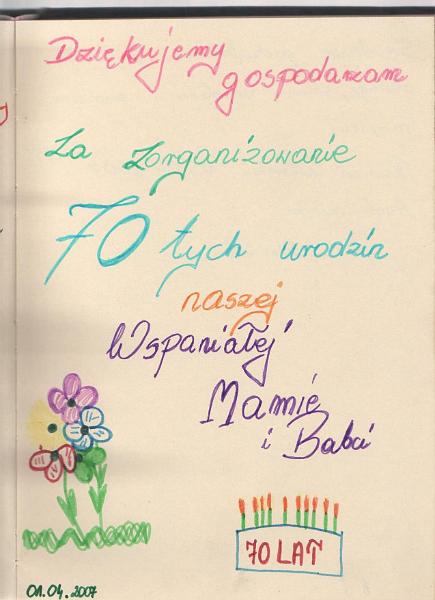 Dziękujemy
gospodarzom
za zorganizowanie
70 tych urodzin
naszej
Wspaniałej
Mamie
i Babci
70 LAT
01.04.2007